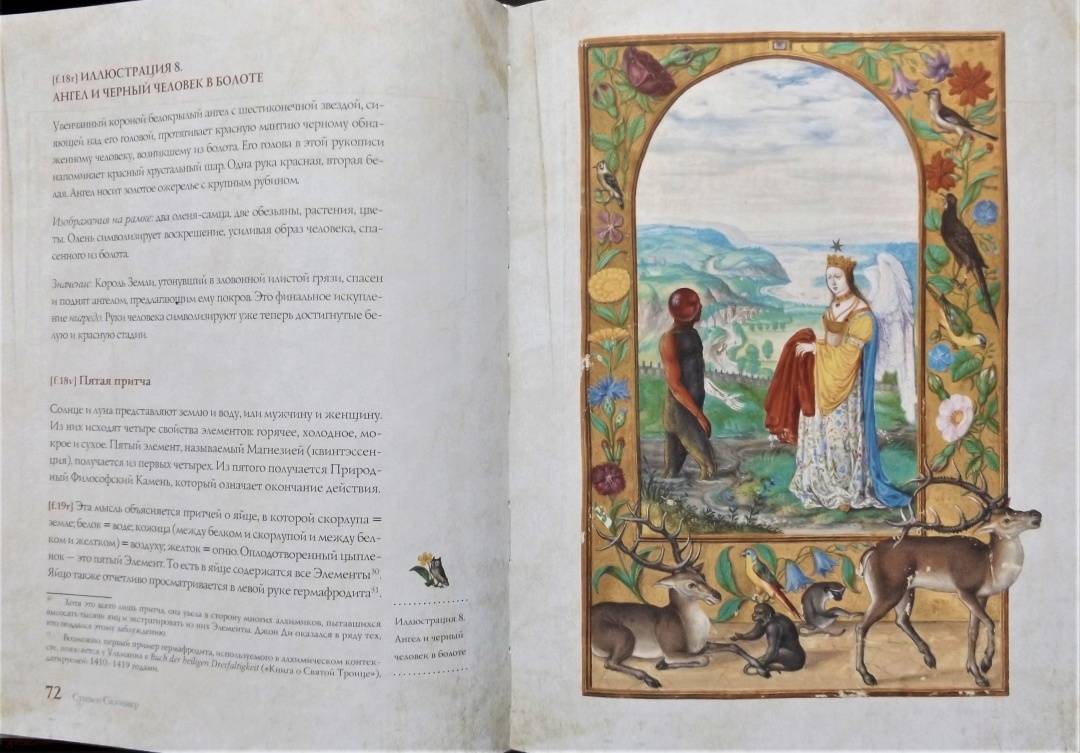 [f.18r] ИЛЛЮСТРАЦИЯ 8.
АНГЕЛ И ЧЕРНЫЙ ЧЕЛОВЕК В БОЛОТЕ
Увенчанный короной белокрылый ангел с шестиконечной звездой, си-
яющей над его головой, протягивает красную мантию черному обна-
женному человеку, возникшему из болота. Его голова в этой рукописи
напоминает красный хрустальный шар. Одна рука красная, вторая бе-
лая. Ангел носит золотое ожерелье с крупным рубином.
Изображения на рамке: два оленя-самца, две обезьяны, растения, цве-
ты. Олень символизирует воскрешение, усиливая образ человека, спа-
сенного из болота.
Значение: Король Земли, утонувший в зловонной илистой грязи, спасен
и поднят ангелом, предлагающим ему покров. Это финальное искупле-
ние нигредо. Руки человека символизируют уже теперь достигнутые бе-
лую и красную стадии.
[f.18v] Пятая притча
Солнце и луна представляют землю и воду, или мужчину и женщину.
Из них исходят четыре свойства элементов: горячее, холодное, мо-
крое и сухое. Пятый элемент, называемый Магнезией (квинтэссен-
ция), получается из первых четырех. Из пятого получается Природ-
ный Философский Камень, который означает окончание действия.
[f.19r] Эта мысль объясняется притчей о яйце, в которой скорлупа =
земле; белок = воде; кожица (между белком и скорлупой и между бел-
ком и желтком) = воздуху; желток = огню. Оплодотворенный цыпле-
нок — это пятый Элемент. То есть в яйце содержатся все Элементы³⁰.
Яйцо также отчетливо просматривается в левой руке гермафродита³¹.
³⁰ Хотя это всего лишь притча, она увела в сторону многих алхимиков, пытавшихся
высосать тысячи яиц и экстрагировать из них Элементы. Джон Ди оказался в ряду тех,
кто поддался этому заблуждению.
³¹ Возможно, первый пример гермафродита, используемого в алхимическом контек-
сте, появляется у Ульманна в Buch der heiligen Dreifaltigkeit («Книга о Святой Троице»),
датируемой 1410–1419 годами.
72 Стивен Скиннер
Иллюстрация 8.
Ангел и черный
человек в болоте